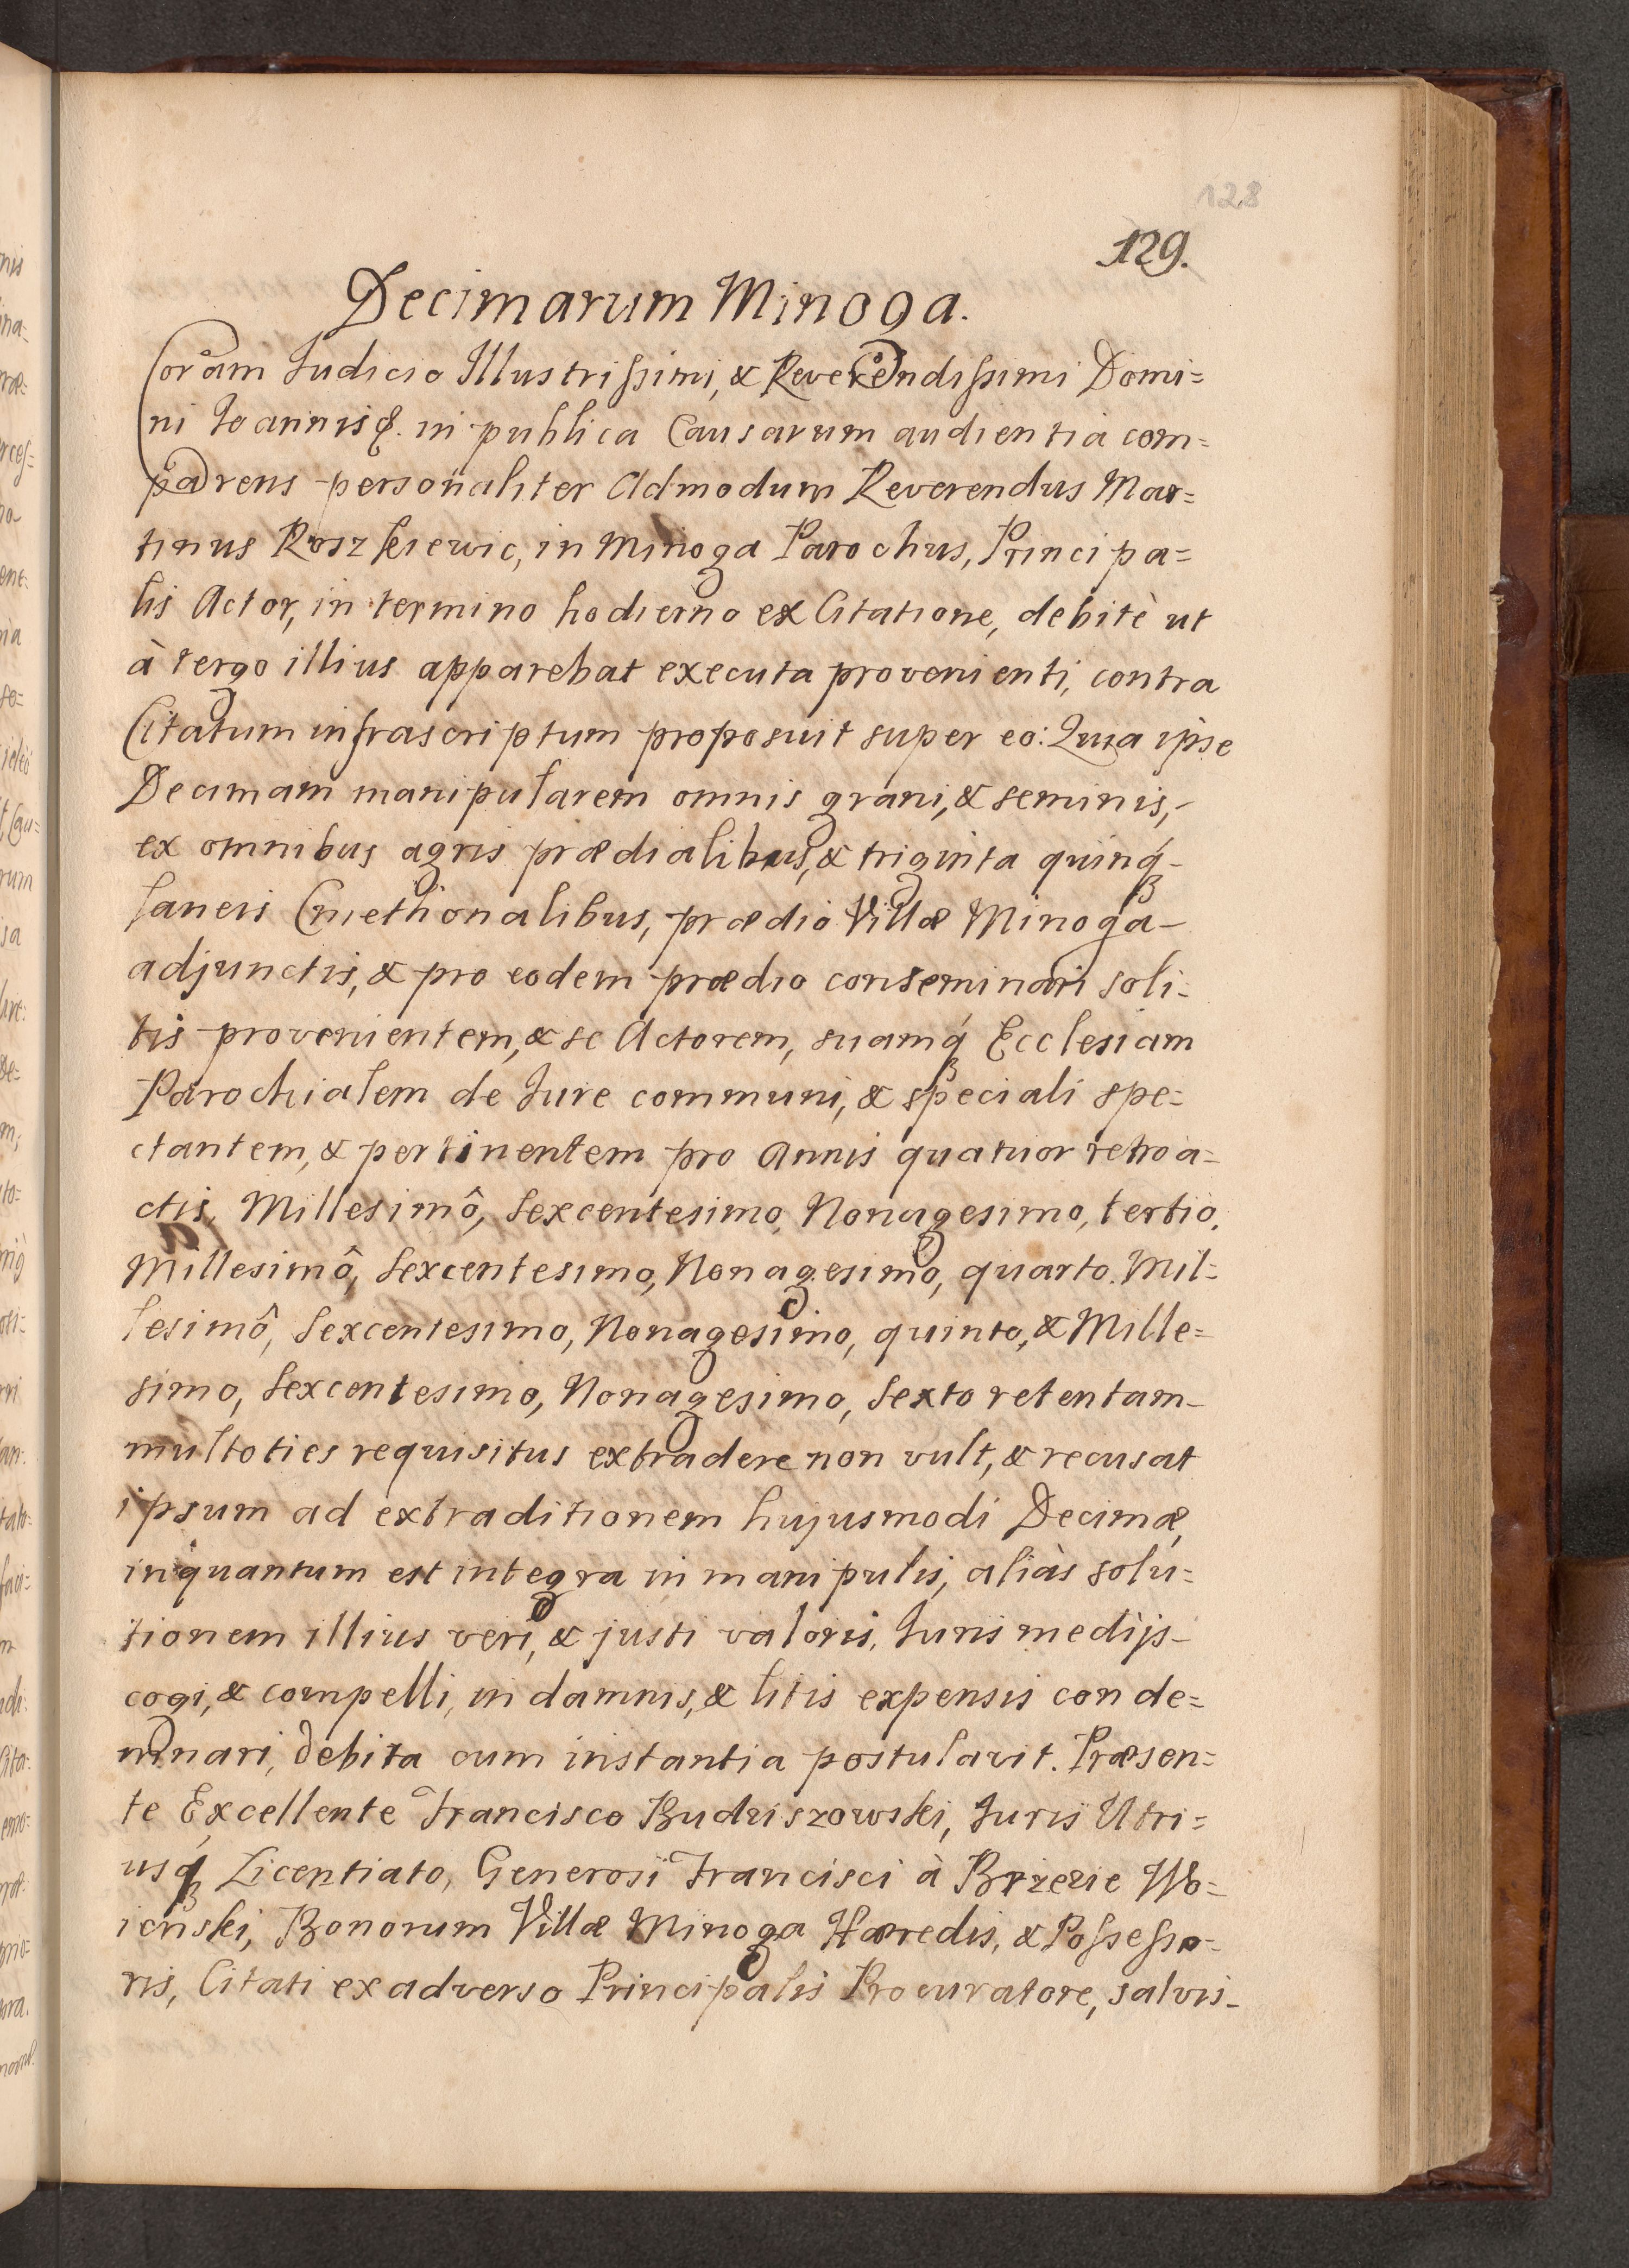 128
129.
Decimarum Minoga.
Coram Judicio Illustrissimi, & Reverendissimi Domi=
ni Joannis &. in publica Causarum audientia com=
parens personaliter Admodum Reverendus Mar=
tinus Roszkiewic, in Minoga Parochus, Principa=
lis Actor, in termino hodierno ex Citatione, debitè ut
à tergo illius apparebat executa provenienti, contra
Citatum infrascriptum proposuit super eo: Quia ipse
Decimam manipularem omnis grani, & seminis,-
ex omnibus agris prædialibus, & triginta quinq́;-
laneis Cmethonalibus, prædio Villæ Minoga-
adjunctis, & pro eodem prædio conseminari soli=
tis provenientem, & se Actorem, suamq́; Ecclesiam
Parochialem de Jure communi, & speciali spe=
ctantem, & pertinentem pro Annis quatuor retroa=
ctis, Millesimô, Sexcentesimo, Nonagesimo, tertio,
Millesimô, Sexcentesimo, Nonagesimo, quarto. Mil=
lesimô, Sexcentesimo, Nonagesimo, quinto, & Mille=
simo, Sexcentesimo, Nonagesimo, Sexto retentam-
multoties requisitus extradere non vult, & recusat
ipsum ad extraditionem hujusmodi Decimæ,
inquantum est integra in manipulis, aliàs solu=
tionem illius veri, & justi valoris, Juris medijs-
cogi, & compelli, in damnis, & litis expensis conde=
mnari, debita cum instantia postulavit. Præsen=
te Excellente Francisco Budziszowski, Juris Utri=
usq́; Licentiato, Generosi Francisci à Brzezie
Bonorum Villæ Minoga Hæredis, & Possesso=
ris, Citati ex adverso Principalis Procuratore, salvis-